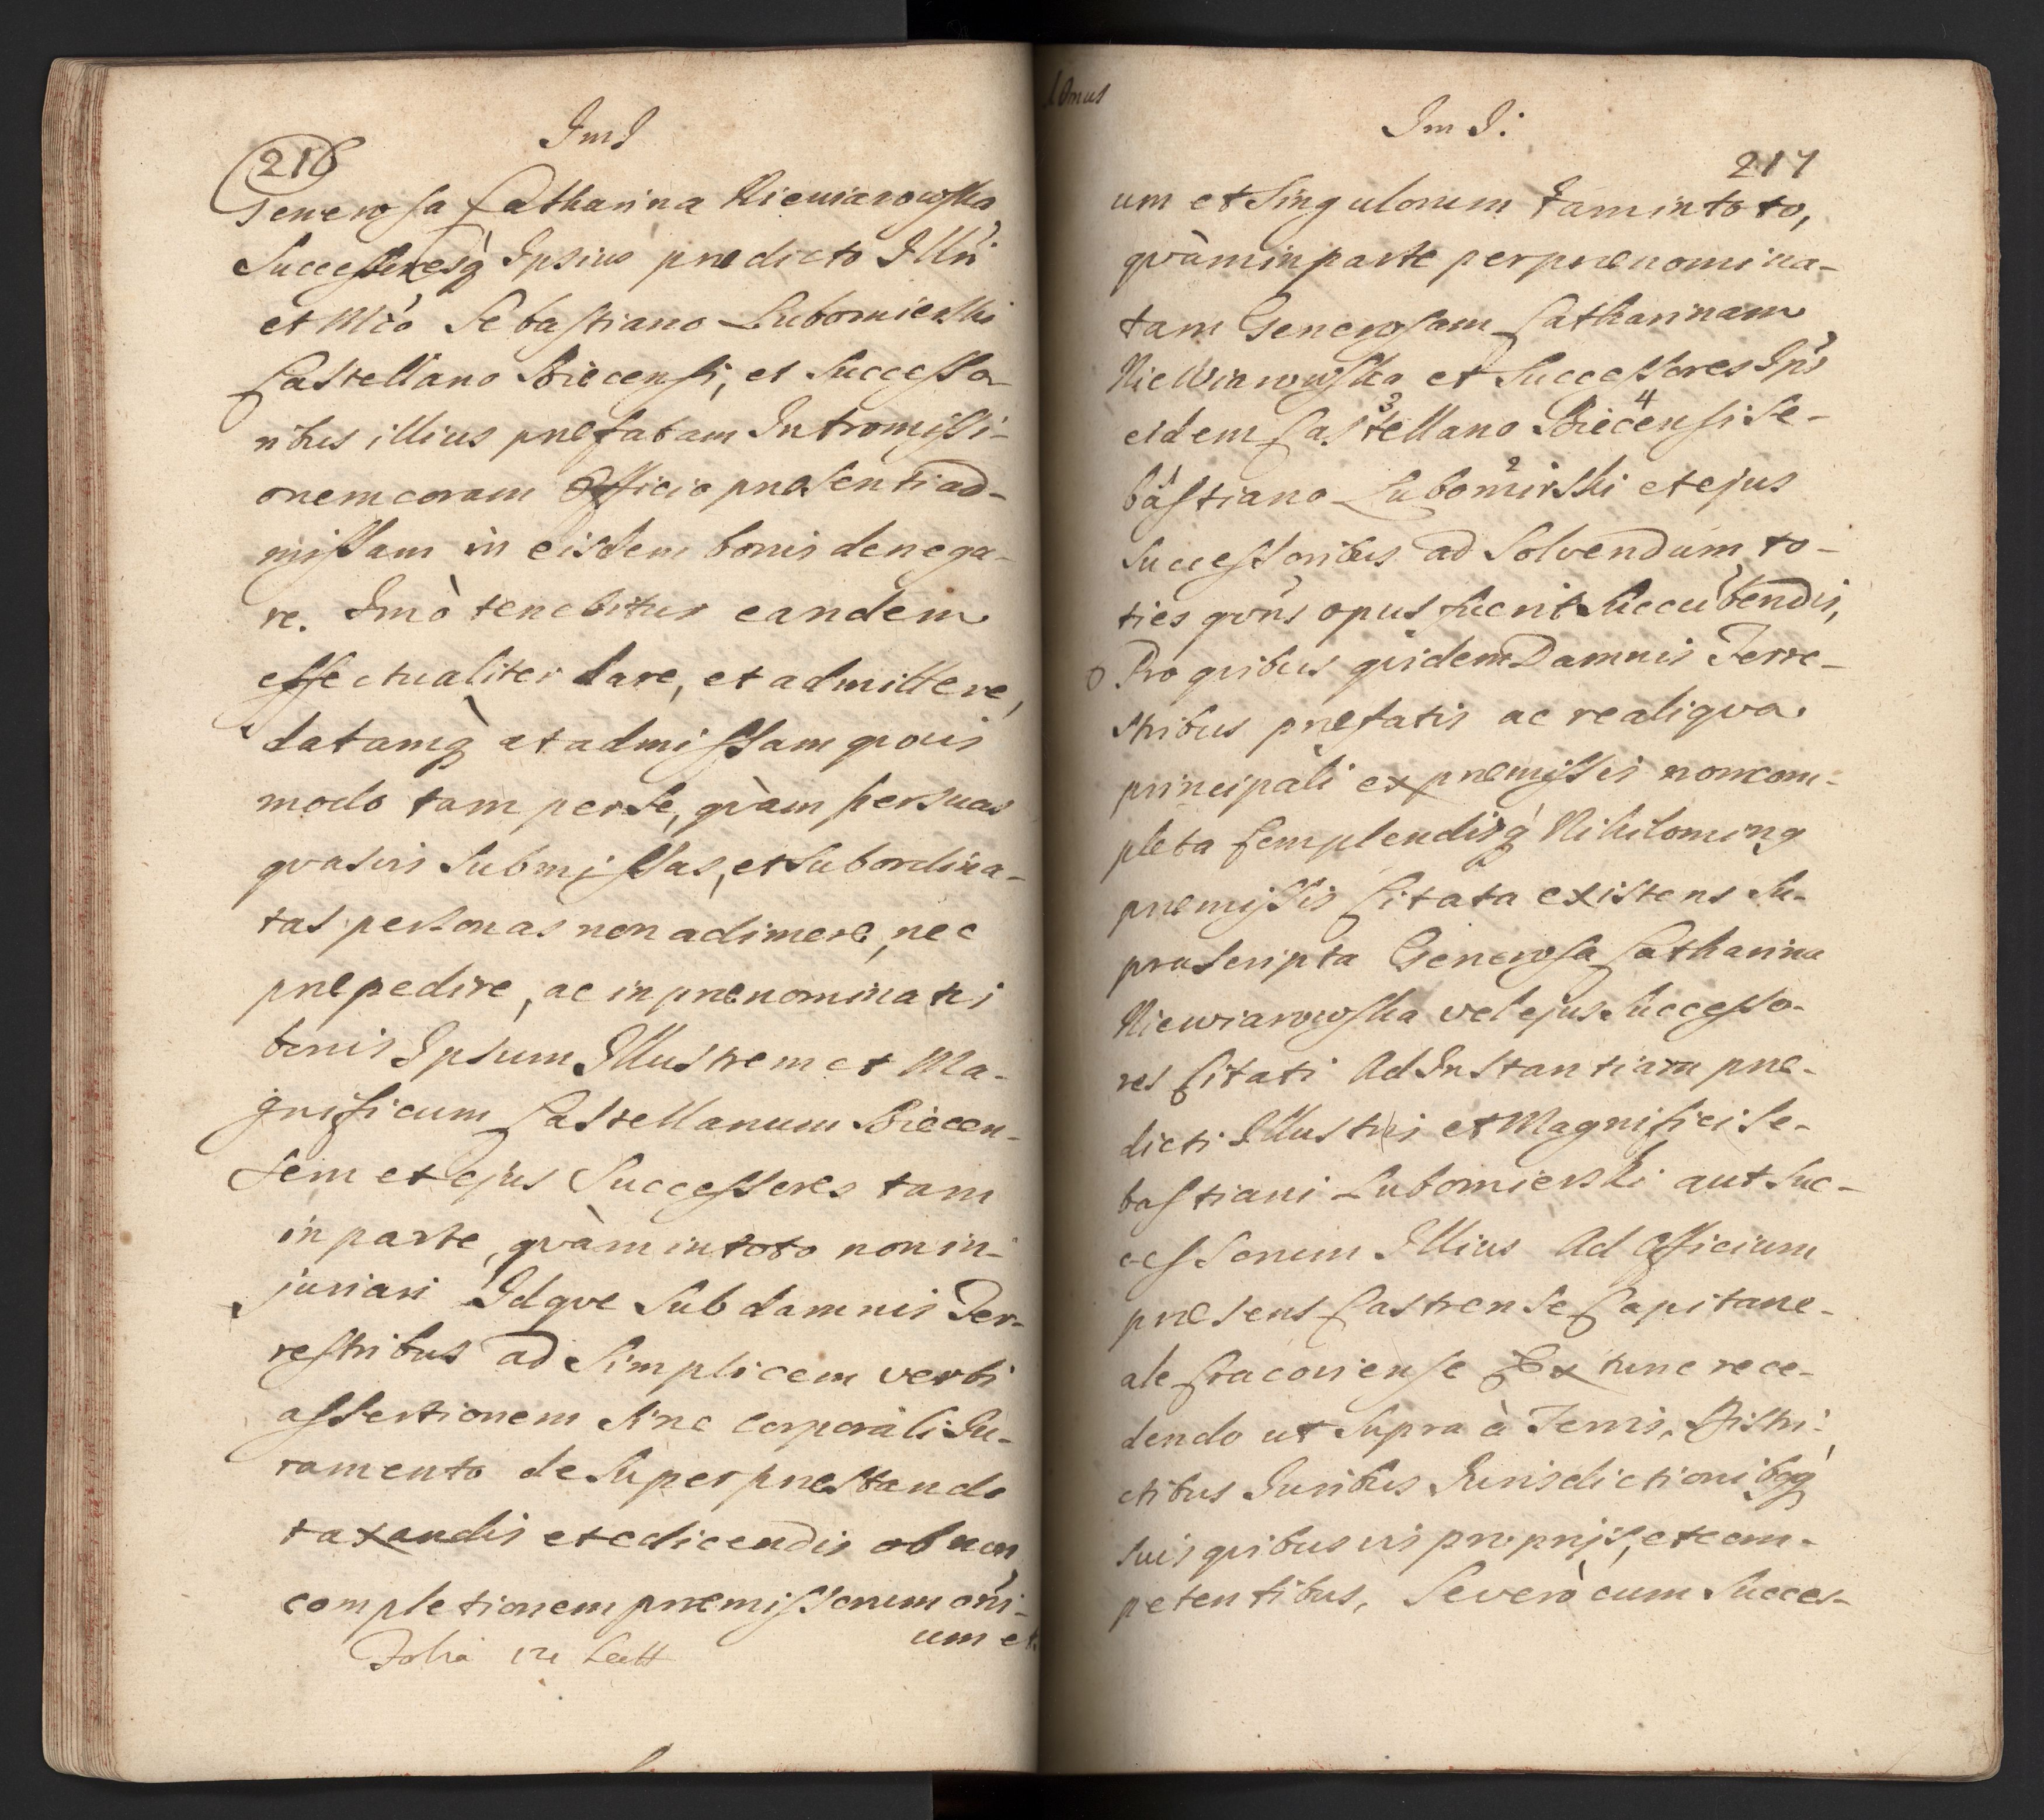 216
ImI
Generosa Catharina Niewiarowska
Successoresq̀ Ipsius predicto Illri
et Mco Sebastiano Lubomierski
Castellano Biecensi, et Successo-
ribus illius prefatam Intromissi-
onem coram Officio presenti ad-
missam in eisdem bonis denega-
re. Imò tenebitur eandem
effectualiter dare, et admittere,
datamq̀ et admissam qvovis
modo tam per se, qvàm per suas
qvasvis submissas, et subordina-
tas personas non adimere, nec
prepedire, ac in prenominatis
bonis Ipsum Illustrem et Ma-
gnificum Castellanum Biecen-
sem et ejus Successores tam
in parte, qvàm in toto non in-
juriari Idqve sub damnis Ter-
restribus ad simplicem verbi
assertionem sine corporali Iu-
ramento desuper prestando
taxandis et edicendis ob non
completionem premissorum oni-
um et
Folia 121
Im I:
217
um et Singulorum tam in toto,
qvàm in parte per prenomina-
tam Generosam Catharinam
Niewiarowska et Successores Ips
eidem Castellano Biecensi Se-
3 4
bastiano Lubomirski et ejus
1 2
Successoribus ad solvendum to-
ties qvots opus fuerit succubendis,
Pro qvibus qvidem Damnis Terre-
stribus prefatis ac re aliqva
principali ex premissis non com-
pleta Complendisq̀ Nihilominq
premissis Citata existens Su-
prascripta Generosa Catharina
Niewiarowska vel ejus Successo-
res Citati Ad Instantiam pre-
dicti Illustris et Magnifici Se-
bastiani Lubomierski aut Suc-
cessorum Illius Ad Officium
presens Castrense Capitane-
ale Cracoviense Ex tunc rece-
dendo ut supra à Terris, Distri-
ctibus Iuribus Iurisdictionibqq
suis qvibusvis proprijs, et com-
petentibus, Severò cum Succes-